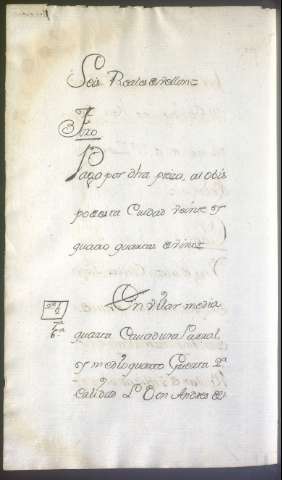 Seis Reales de vellon=
Fro
Pago por dha pieza, al obis
po de esta Ciudad veinte y
quatro quartas de vino=
En Vilar media
quarta Cavadura Parral
y medio quarto Guerta 2ª
Calidad